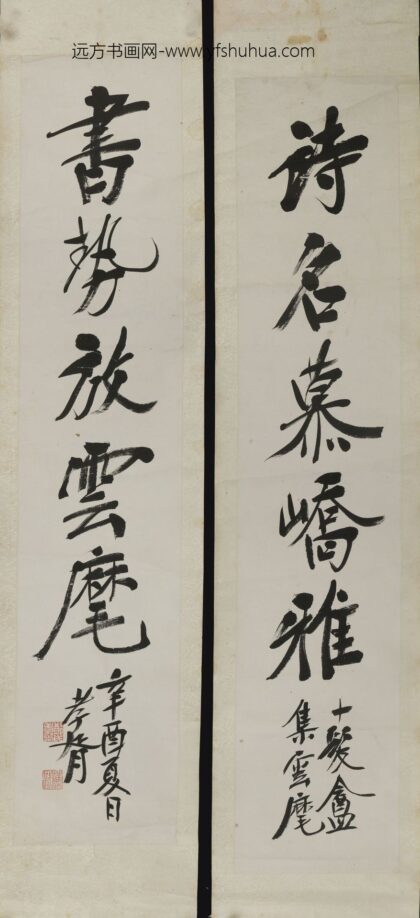 远方书画网-www.yfshuhua.com
詩名慕嶠雅
十髮盦
集雲麾
書勢放雲麾
辛酉夏日
孝胥